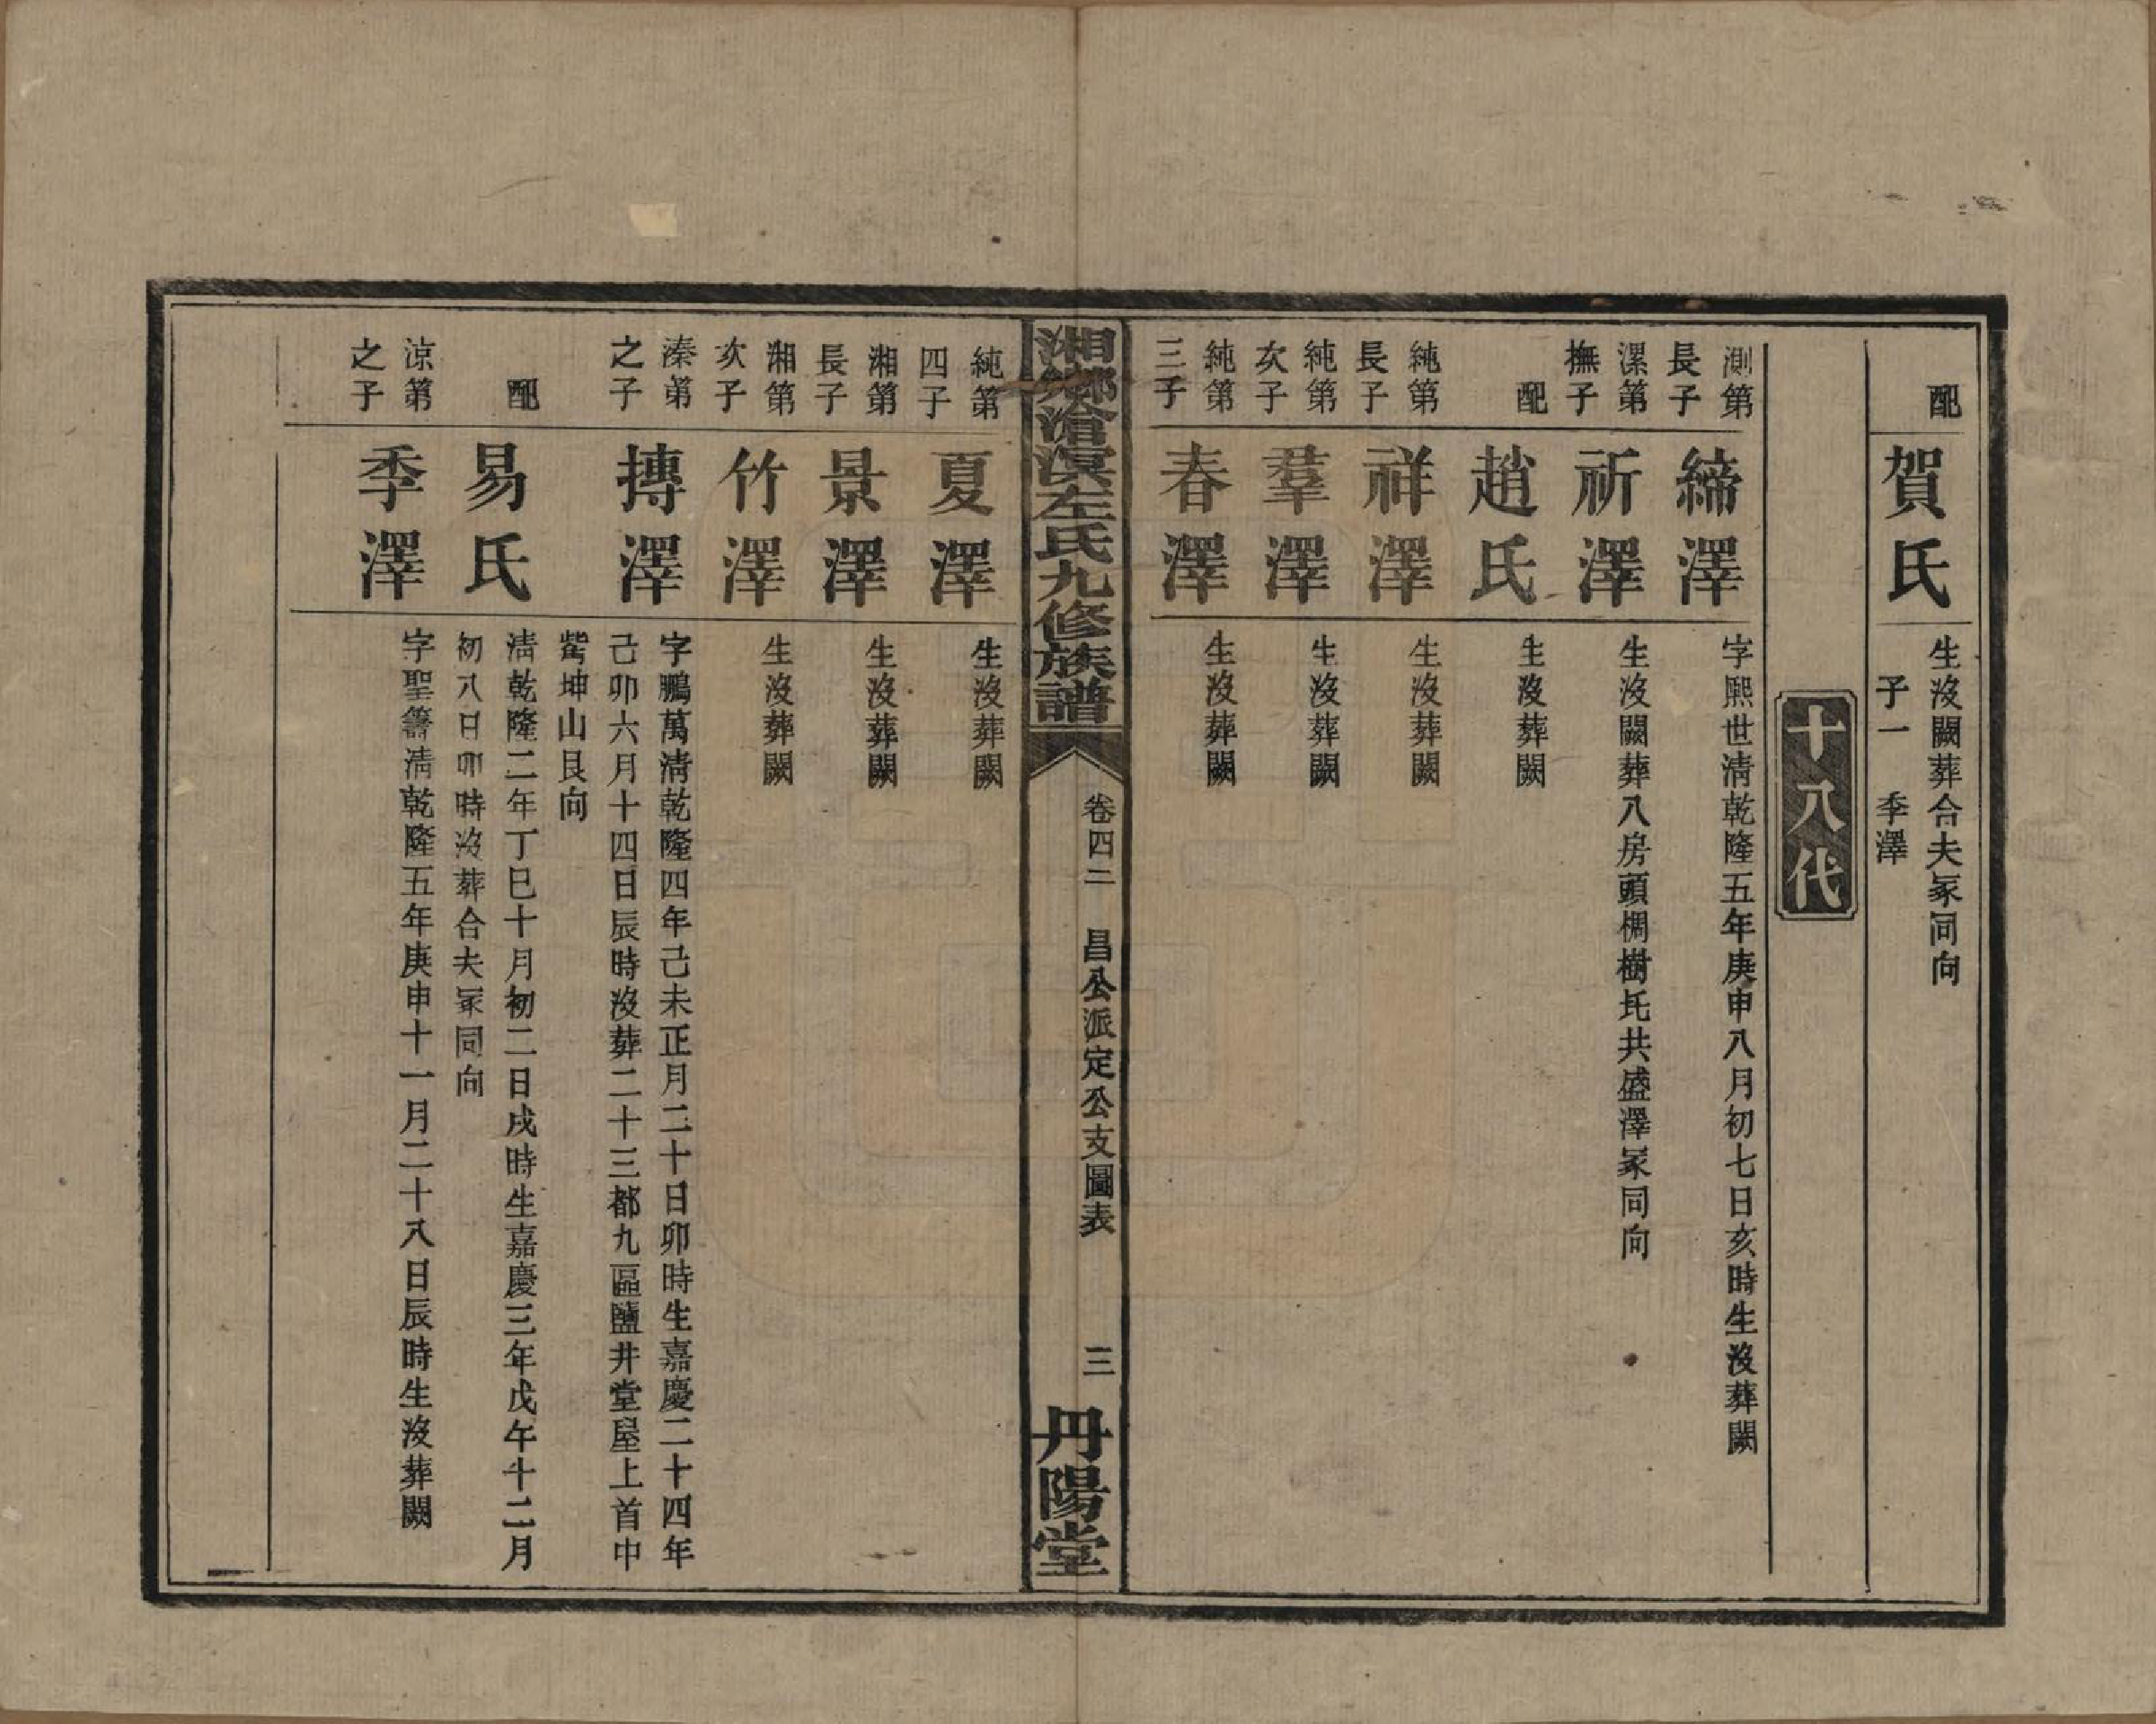 配
賀氏
生沒闕葬合夫冢同向
子一　季澤
十八代
測第
長子
締澤
字熙世淸乾隆五年庚申八月初七日亥時生沒葬闕
漯第
撫子
祈澤
生沒闕葬八房頭椆樹圫共盛澤冢同向
配
趙氏
生沒葬闕
純第
長子
祥澤
生沒葬闕
純第
次子
羣澤
生沒葬闕
純第
三子
春澤
生沒葬闕
湘鄉滄溟左氏九修族譜
卷四二　昌公派定公支圖表　三
丹陽堂
純第
四子
夏澤
生沒葬闕
湘第
長子
景澤
生沒葬闕
湘第
次子
竹澤
生沒葬闕
溱第
之子
摶澤
字鵬萬淸乾隆四年己未正月二十日卯時生嘉慶二十四年
己卯六月十四日辰時沒葬二十三都九區鹽井堂屋上首中
坤山艮向
配
易氏
淸乾隆二年丁巳十月初二日戌時生嘉慶三年戊午十二月
初八日卯時沒葬合夫冢同向
涼第
之子
季澤
字聖籌淸乾隆五年庚申十一月二十八日辰時生沒葬闕